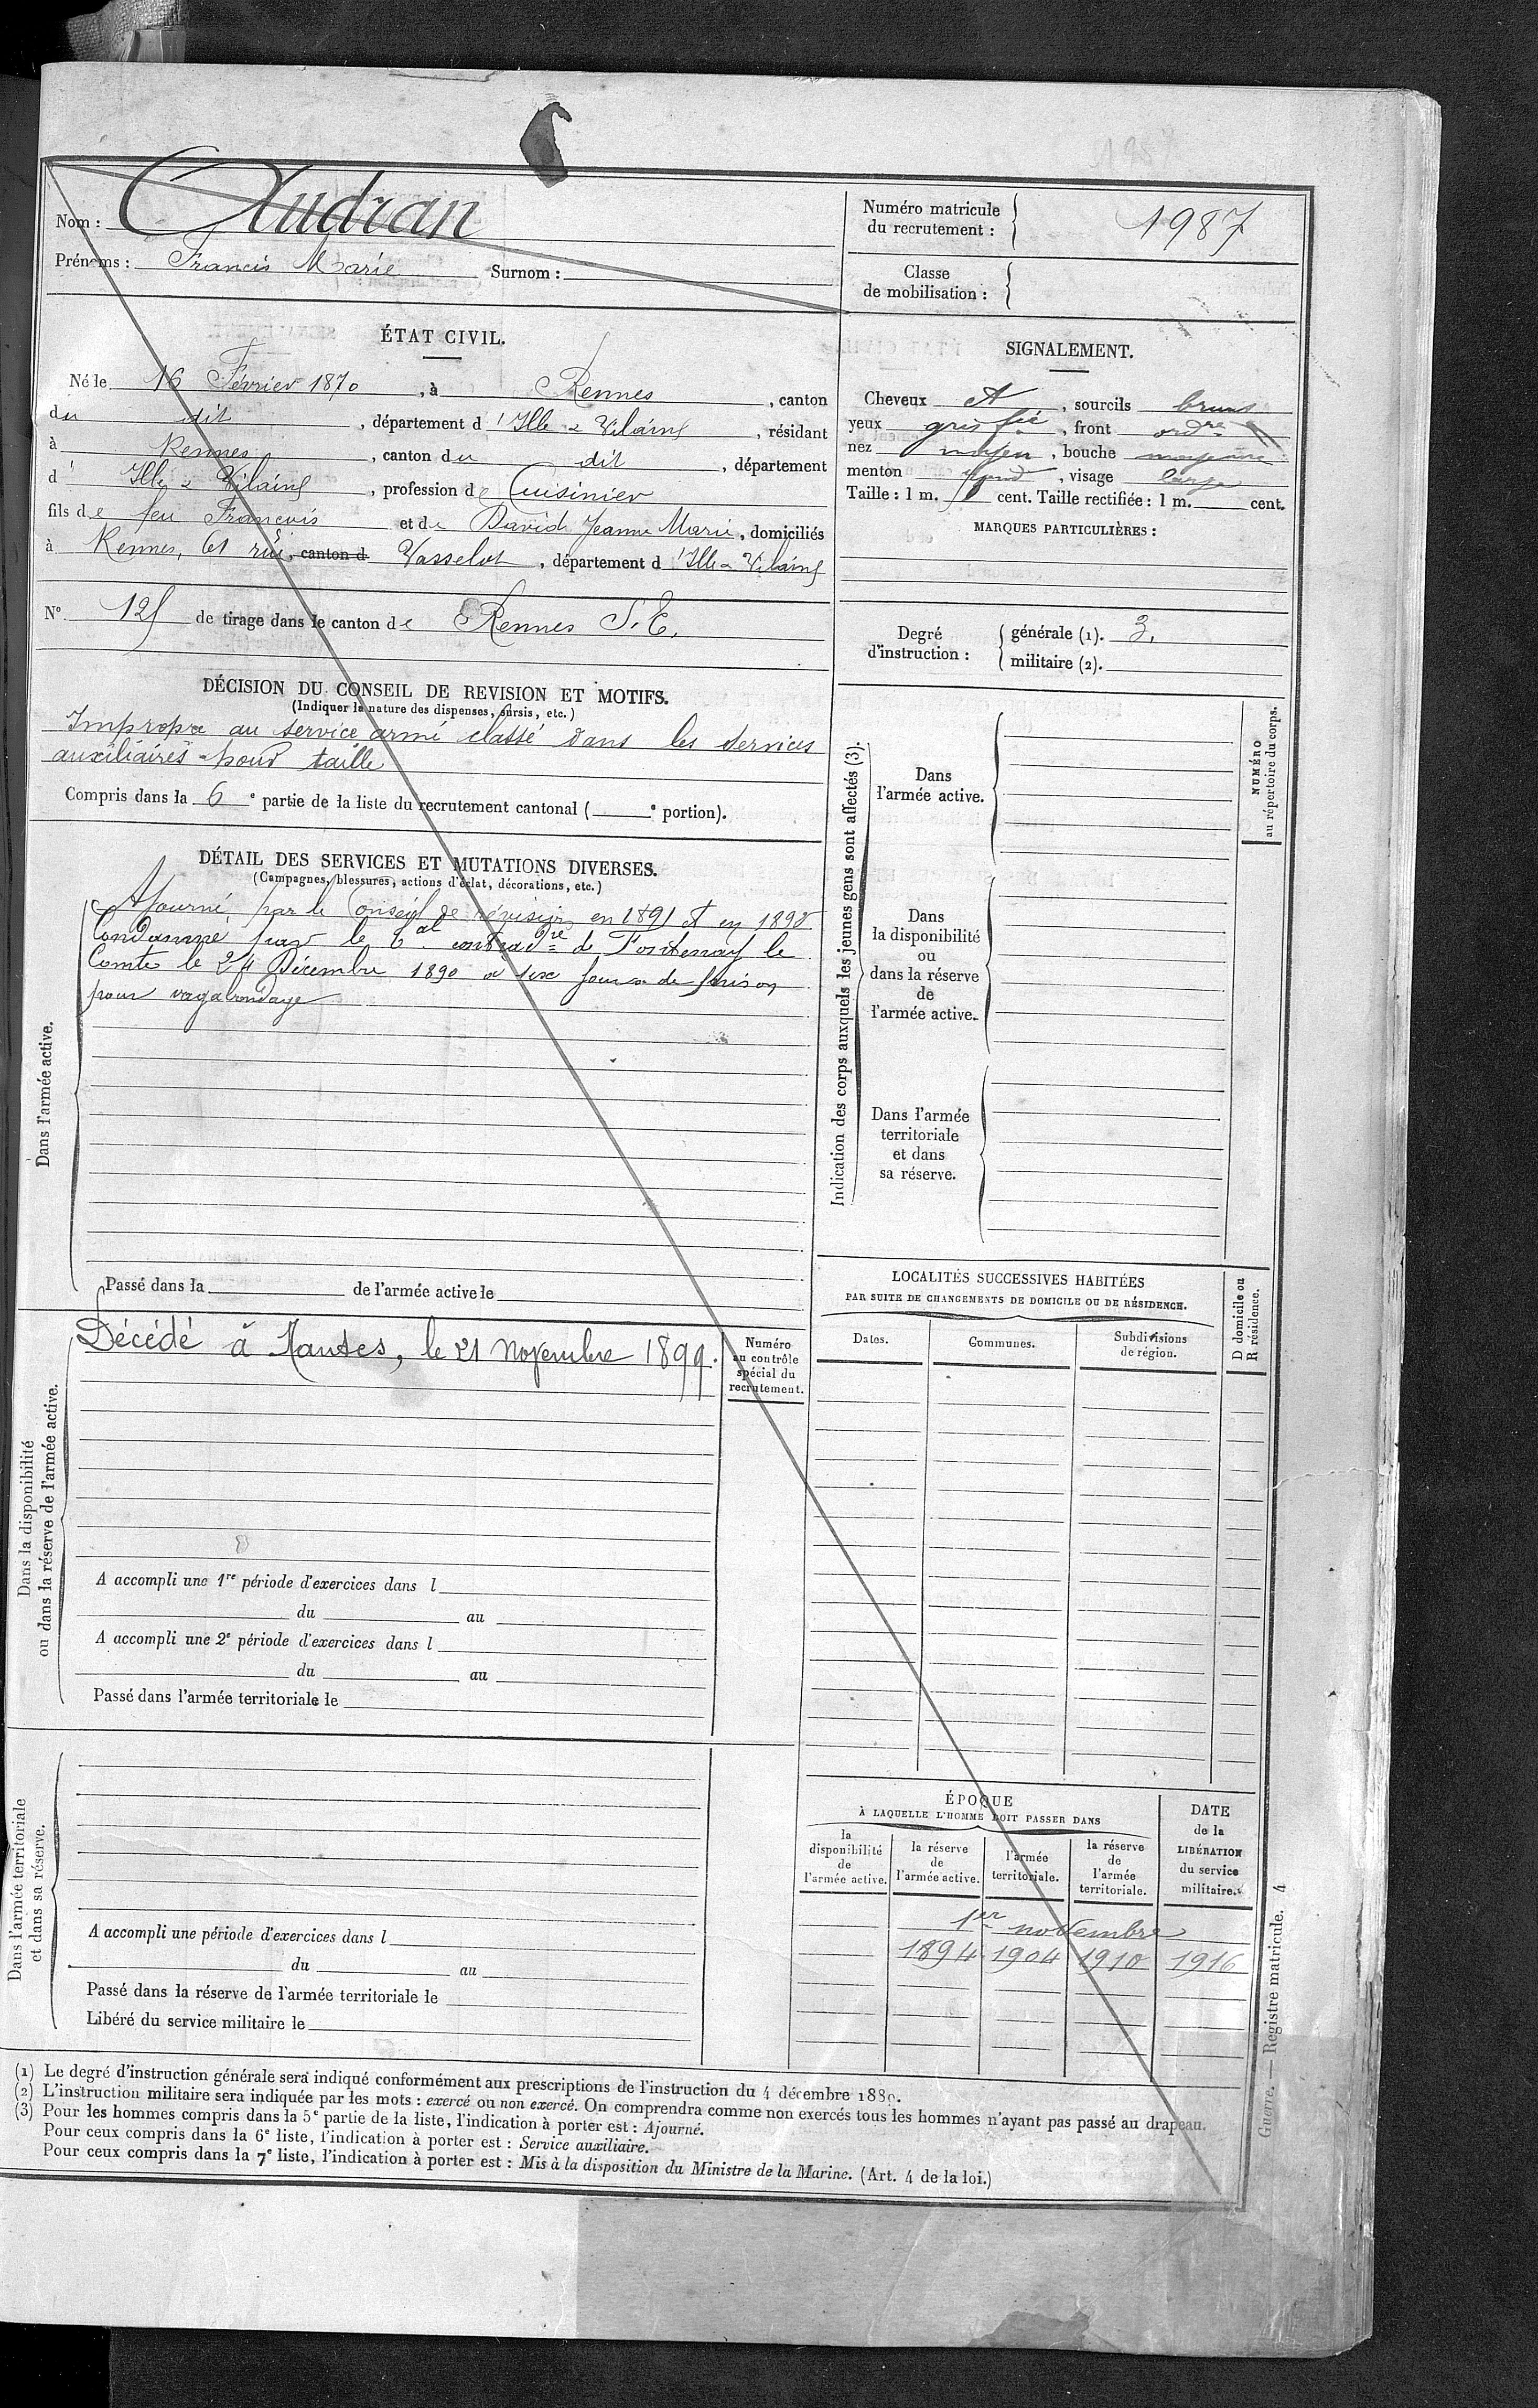 Nom : Audran
Prénoms : Francis Marie Surnom :
Numéro matricule du recrutement : 1987
Classe de mobilisation :
ÉTAT CIVIL.
Né le 16 Février 1870, à Rennes, canton
du dit, département d'Ille & Vilaine, résidant
à Rennes, canton du dit, département
d'Ille & Vilaine, profession de Cuisinier
fils de feu François et de David Jeanne Marie, domiciliés
à Rennes, 61 rue, canton d Vasselot, département d'Ille & Vilaine
N° 125 de tirage dans le canton de Rennes S. E.
SIGNALEMENT.
Cheveux et, sourcils bruns
yeux gris, front ordre
nez moyen, bouche moyenne
menton rond, visage large
Taille : 1 m. cent. Taille rectifiée : 1 m. cent.
MARQUES PARTICULIÈRES :
Degré d'instruction :
générale (1). 3.
militaire (2).
DÉCISION DU CONSEIL DE REVISION ET MOTIFS.
(Indiquer la nature des dispenses, sursis, etc.)
Impropre au service armé classé dans les services
auxiliaires pour taille
Compris dans la 6e partie de la liste du recrutement cantonal ( e portion).
DÉTAIL DES SERVICES ET MUTATIONS DIVERSES.
(Campagnes, blessures, actions d'éclat, décorations, etc.)
Dans l'armée active.
Ajourné, par le Conseil de révision en 1891 et en 1892
Condamné par le de Fontenay le
Comte le 24 Décembre 1890 a six jours de prison
pour vagabondage
Passé dans la de l'armée active le
Indication des corps auxquels les jeunes gens sont affectés (3).
Dans l'armée active.
Dans la disponibilité ou dans la réserve de l'armée active.
Dans l'armée territoriale et dans sa réserve.
NUMÉRO au répertoire du corps.
Dans la disponibilité ou dans la réserve de l'armée active.
Décédé à Nantes, le 21 novembre 1899.
Numéro au contrôle spécial du recrutement.
A accompli une 1re période d'exercices dans l
du au
A accompli une 2e période d'exercices dans l
du au
Passé dans l'armée territoriale le
LOCALITÉS SUCCESSIVES HABITÉES
PAR SUITE DE CHANGEMENTS DE DOMICILE OU DE RÉSIDENCE.
Dates. Communes. Subdivisions de région.
D domicile ou R résidence.
Dans l'armée territoriale et dans sa réserve.
A accompli une période d'exercices dans l
du au
Passé dans la réserve de l'armée territoriale le
Libéré du service militaire le
ÉPOQUE
À LAQUELLE L'HOMME DOIT PASSER DANS
la disponibilité de l'armée active.
la réserve de l'armée active.
l'armée territoriale.
la réserve de l'armée territoriale.
DATE de la LIBÉRATION du service militaire.
1er novembre
1894 1904 1910 1916
Guerre. — Registre matricule. 4
(1) Le degré d'instruction générale sera indiqué conformément aux prescriptions de l'instruction du 4 décembre 1889.
(2) L'instruction militaire sera indiquée par les mots : exercé ou non exercé. On comprendra comme non exercés tous les hommes n'ayant pas passé au drapeau.
(3) Pour les hommes compris dans la 5e partie de la liste, l'indication à porter est : Ajourné.
Pour ceux compris dans la 6e liste, l'indication à porter est : Service auxiliaire.
Pour ceux compris dans la 7e liste, l'indication à porter est : Mis à la disposition du Ministre de la Marine. (Art. 4 de la loi.)